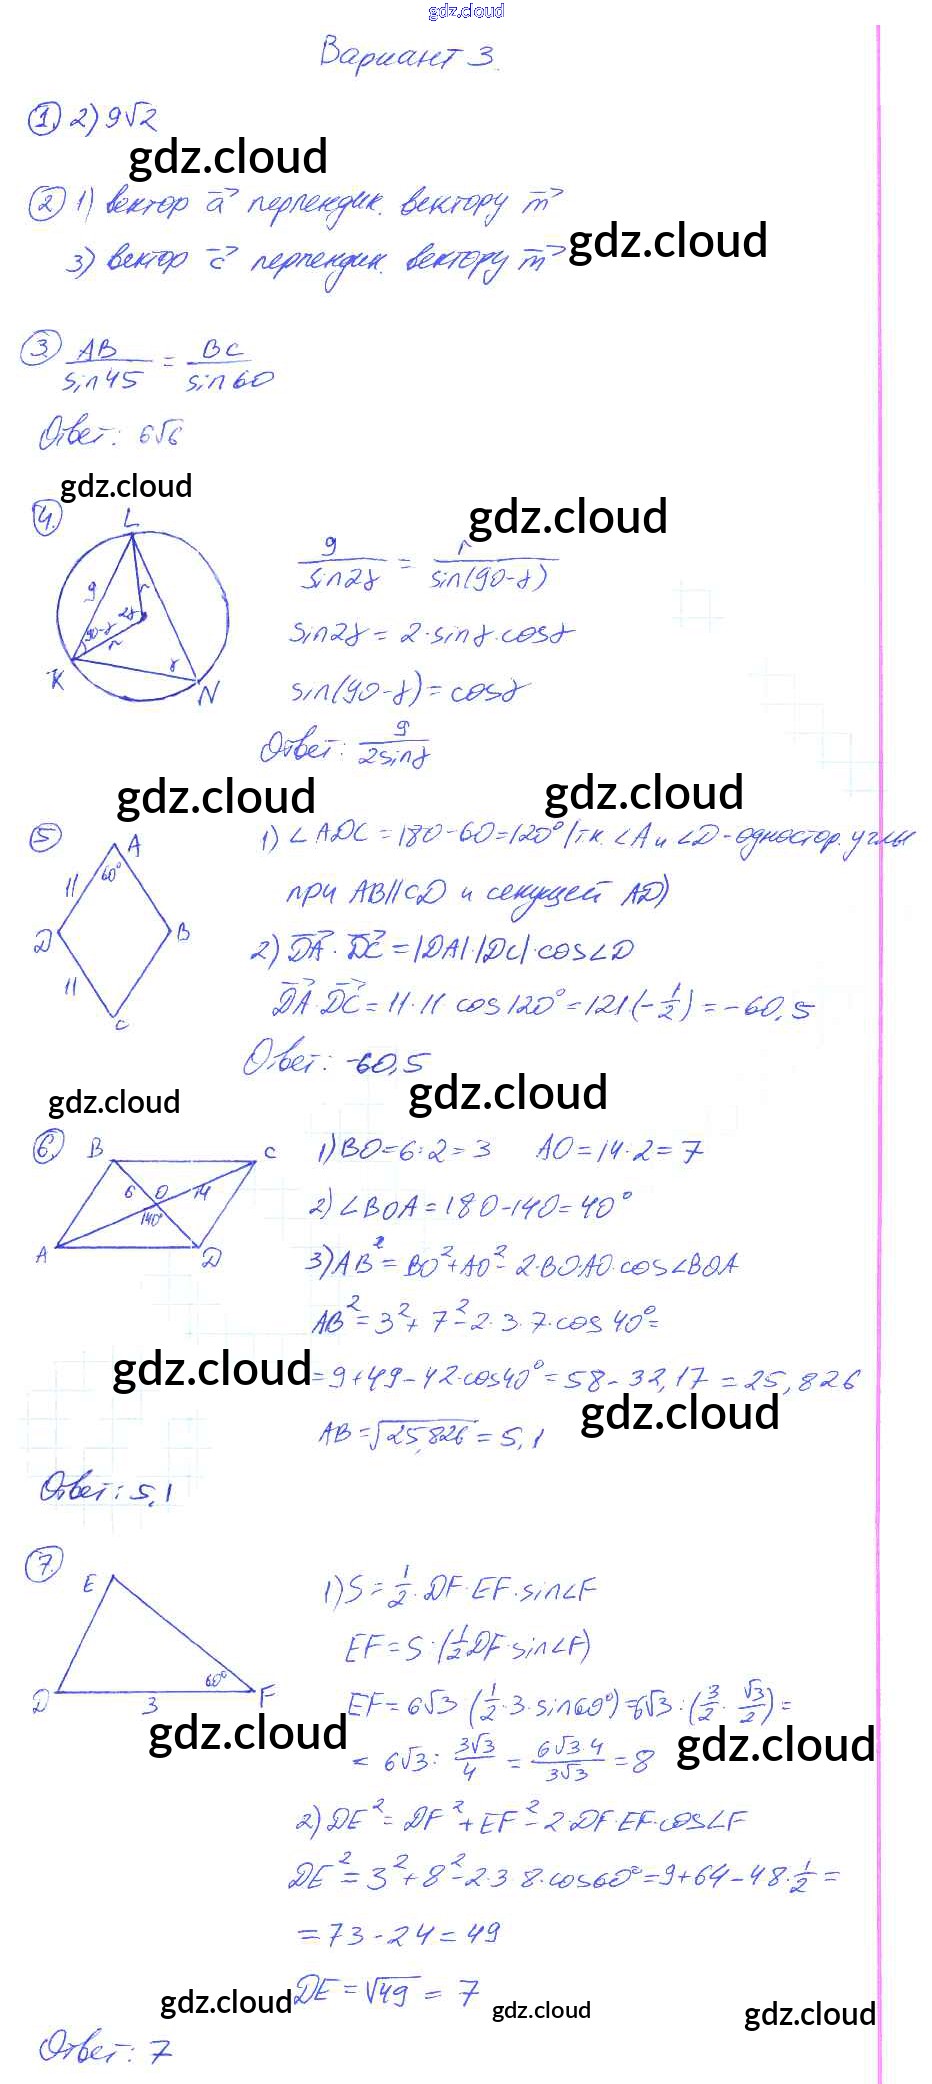 gdz.cloud
Вариант 3.
1. 2) 9√2
gdz.cloud
2 1) вектор a⃗ перпендик. вектору m⃗
gdz.cloud
3) вектор c⃗ перпендик. вектору m⃗
3. AB/sin45 = BC/sin60
Ответ: 6√6
gdz.cloud
gdz.cloud
4. L
9 r 2γ 90-γ r γ
K N
9/sin2γ = r/sin(90-γ)
sin2γ = 2·sinγ·cosγ
sin(90-γ) = cosγ
Ответ: 9/2sinγ
gdz.cloud
gdz.cloud
5 A 60° 11 D B 11 C
1) ∠ADC = 180-60=120° (т.к. ∠A и ∠D - одностор. углы
при AB||CD и секущей AD)
2) DA⃗ · DC⃗ = |DA|·|DC|·cos∠D
DA⃗·DC⃗ = 11·11 cos120° = 121(-1/2) = -60,5
Ответ: -60,5
gdz.cloud
gdz.cloud
6. B C 6 O 14 140° A D
1) BO=6:2=3 AO=14·2=7
2) ∠BOA=180-140=40°
3) AB²=BO²+AO²-2·BO·AO·cos∠BOA
AB²=3²+7²-2·3·7·cos40°=
gdz.cloud
=9+49-42·cos40°=58-32,17=25,826
gdz.cloud
AB=√25,826=5,1
Ответ: 5,1
7. E D 3 60° F
1) S=1/2·DF·EF·sin∠F
EF=S:(1/2DF·sin∠F)
EF=6√3:(1/2·3·sin60°)=6√3:(3/2·√3/2)=
gdz.cloud
= 6√3: 3√3/4 = 6√3·4/3√3 = 8
gdz.cloud
2) DE²=DF²+EF²-2·DF·EF·cos∠F
DE²=3²+8²-2·3·8·cos60°=9+64-48·1/2=
=73-24=49
DE=√49=7
gdz.cloud
gdz.cloud
gdz.cloud
Ответ: 7